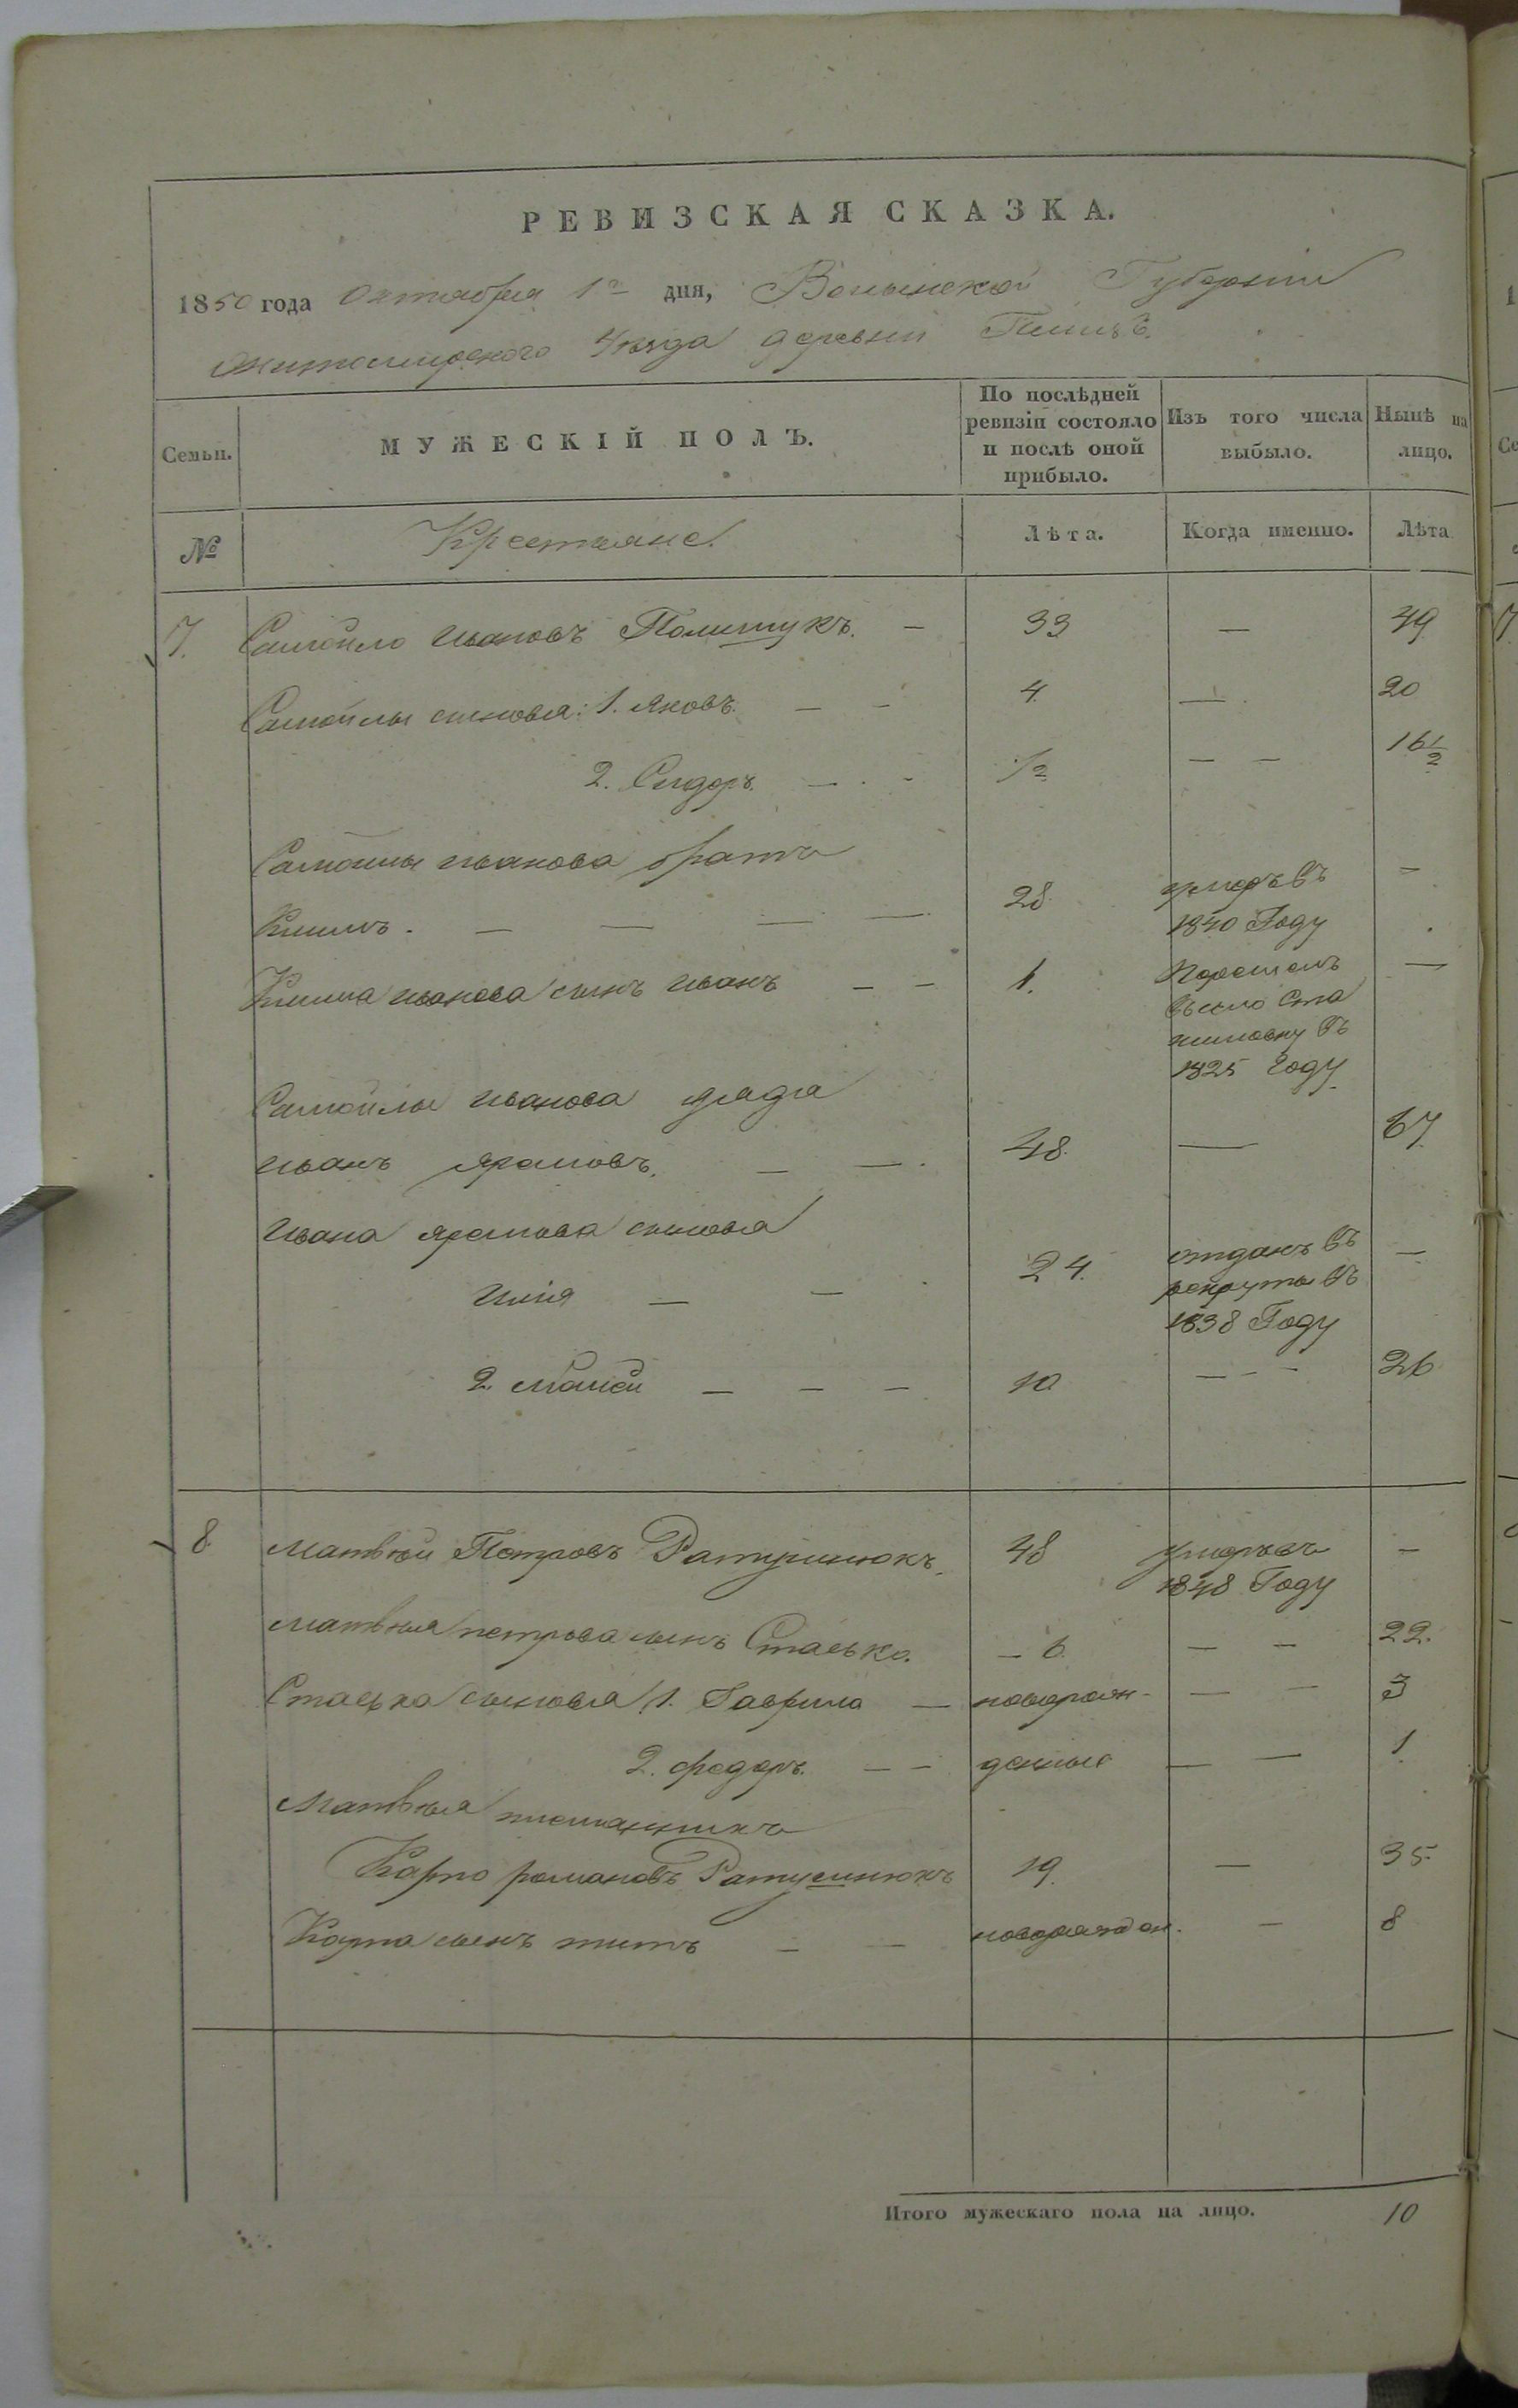 РЕВИЗСКАЯ СКАЗКА.
1850 года Октября 1го дня, Волынской Губернии
Житомирского Уѣзда деревни
Семьи. МУЖЕСКІЙ ПОЛЪ. По послѣдней ревизіи состояло и послѣ оной прибыло. Изъ того числа выбыло. Нынѣ на лицо.
№ Крестьяне. Лѣта. Когда именно. Лѣта
7. Самойло Ивановъ Полищукъ. — 33 — 49
Самойлы сыновья: 1. Яковъ. — — 4. — 20
2. Сидоръ. — - 1/2 — — 16 1/2
Самойлы Иванова братъ
Климъ. — — — — 28. умеръ въ 1840 Году —
Клима Иванова сынъ Иванъ — — 1. въ село въ 1825 году —
Самойлы Иванова дядя
Иванъ Яремовъ. — — 48. — 67.
Ивана Яремова сыновья
Илія — — 24. отданъ въ рекруты въ 1838 Году —
2. Мойсей — — — 10 — - — 26
8 Матвѣй Петровъ 48 умеръ въ 1848 Году —
Матвѣя Петрова сынъ Стасько. — 6. — — 22.
Стаська сыновья 1. Гаврило — новорож- — — 3
2. Федоръ. — — денные — — 1.
Матвѣя племянникъ
Карпо Романовъ 19. — 35.
Карпа сынъ Титъ — — новорожден. — 8
Итого мужескаго пола на лицо. 10